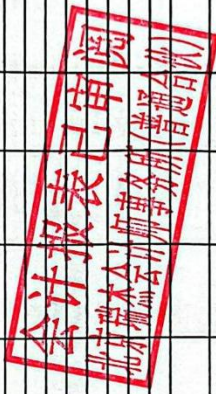 会计报表已审阅
北京瑞杰会计师事务所(普通合伙)